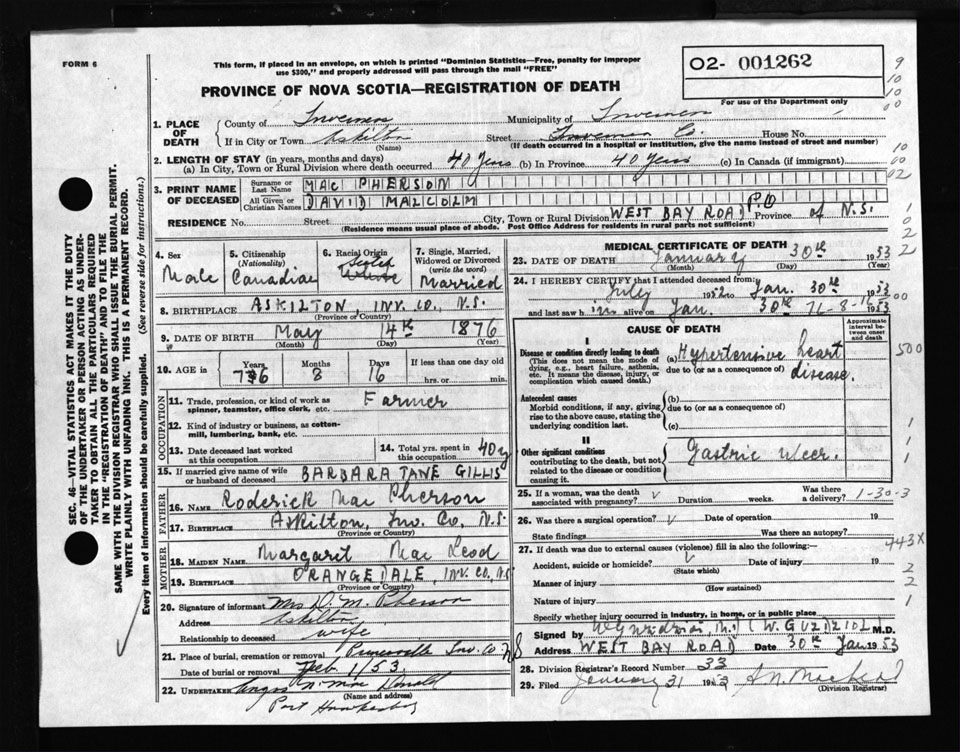 FORM 6
This form, if placed in an envelope, on which is printed "Dominion Statistics—Free, penalty for improper
use $300," and properly addressed will pass through the mail "FREE"
O2- 001262
For use of the Department only
PROVINCE OF NOVA SCOTIA—REGISTRATION OF DEATH
1. PLACE OF DEATH
County of Inverness Municipality of Inverness
If in City or Town Askilton Street Inverness Co. House No.
(Name) (If death occurred in a hospital or institution, give the name instead of street and number)
2. LENGTH OF STAY (in years, months and days)
(a) In City, Town or Rural Division where death occurred 40 Years (b) In Province 40 Years (c) In Canada (if immigrant)
3. PRINT NAME OF DECEASED
Surname or Last Name MAC PHERSON
All Given or Christian Names DAVID MALCOLM
RESIDENCE No. Street City, Town or Rural Division WEST BAY ROAD P.O Province of N.S.
(Residence means usual place of abode. Post Office Address for residents in rural parts not sufficient)
4. Sex Male
5. Citizenship (Nationality) Canadian
6. Racial Origin Scotch White
7. Single, Married, Widowed or Divorced (write the word) Married
8. BIRTHPLACE ASKILTON INV. CO., N.S.
(Province or Country)
9. DATE OF BIRTH May 14th 1876
(Month) (Day) (Year)
10. AGE in Years 76 Months 8 Days 16 If less than one day old
hrs. or min.
OCCUPATION
11. Trade, profession, or kind of work as spinner, teamster, office clerk, etc. Farmer
12. Kind of industry or business, as cotton-mill, lumbering, bank, etc.
13. Date deceased last worked at this occupation
14. Total yrs. spent in this occupation 40 y
15. If married give name of wife or husband of deceased BARBARA JANE GILLIS
FATHER
16. NAME Roderick Mac Pherson
17. BIRTHPLACE Askilton, Inv. Co, N.S.
(Province or Country)
MOTHER
18. MAIDEN NAME Margaret Mac Leod
19. BIRTHPLACE ORANGEDALE, INV. CO, N.S
(Province or Country)
20. Signature of informant Mrs D. M. Pherson
Address Askilton
Relationship to deceased wife
21. Place of burial, cremation or removal Princeville Inv. Co N S
Date of burial or removal Feb 1/53
22. UNDERTAKER Angus N. Mac Donald
(Name and address)
Port Hawkesbury
MEDICAL CERTIFICATE OF DEATH
23. DATE OF DEATH January 30th 1953
(Month) (Day) (Year)
24. I HEREBY CERTIFY that I attended deceased from:
July 1952 to Jan. 30th 1953
and last saw him alive on Jan. 30th 76-8-16 1953
CAUSE OF DEATH
Approximate interval between onset and death
I
Disease or condition directly leading to death (a) Hypertensive heart
(This does not mean the mode of dying, e.g., heart failure, asthenia, etc. It means the disease, injury, or complication which caused death.)
due to (or as a consequence of) disease.
Antecedent causes
Morbid conditions, if any, giving rise to the above cause, stating the underlying condition last.
(b)
due to (or as a consequence of)
(c)
II
Other significant conditions
contributing to the death, but not related to the disease or condition causing it.
Gastric ulcer.
25. If a woman, was the death associated with pregnancy? Duration weeks. Was there a delivery? 1-30-3
26. Was there a surgical operation? Date of operation 19
State findings Was there an autopsy?
27. If death was due to external causes (violence) fill in also the following:— 443X
Accident, suicide or homicide? Date of injury 19
(State which)
Manner of injury
(How sustained)
Nature of injury
Specify whether injury occurred in industry, in home, or in public place
Signed by M.D.
Address WEST BAY ROAD Date 30th Jan 1953
28. Division Registrar's Record Number 33
29. Filed January 31 1953
(Division Registrar)
SEC. 46—VITAL STATISTICS ACT MAKES IT THE DUTY
OF THE UNDERTAKER OR PERSON ACTING AS UNDER-
TAKER TO OBTAIN ALL THE PARTICULARS REQUIRED
IN THE "REGISTRATION OF DEATH" AND TO FILE THE
SAME WITH THE DIVISION REGISTRAR WHO SHALL ISSUE THE BURIAL PERMIT.
WRITE PLAINLY WITH UNFADING INK. THIS IS A PERMANENT RECORD.
Every item of information should be carefully supplied. (See reverse side for instructions.)